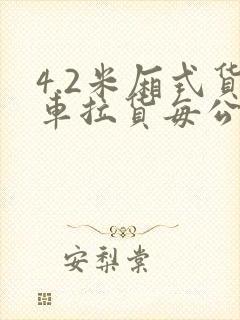 4.2米厢式货
车拉货每公
安梨棠